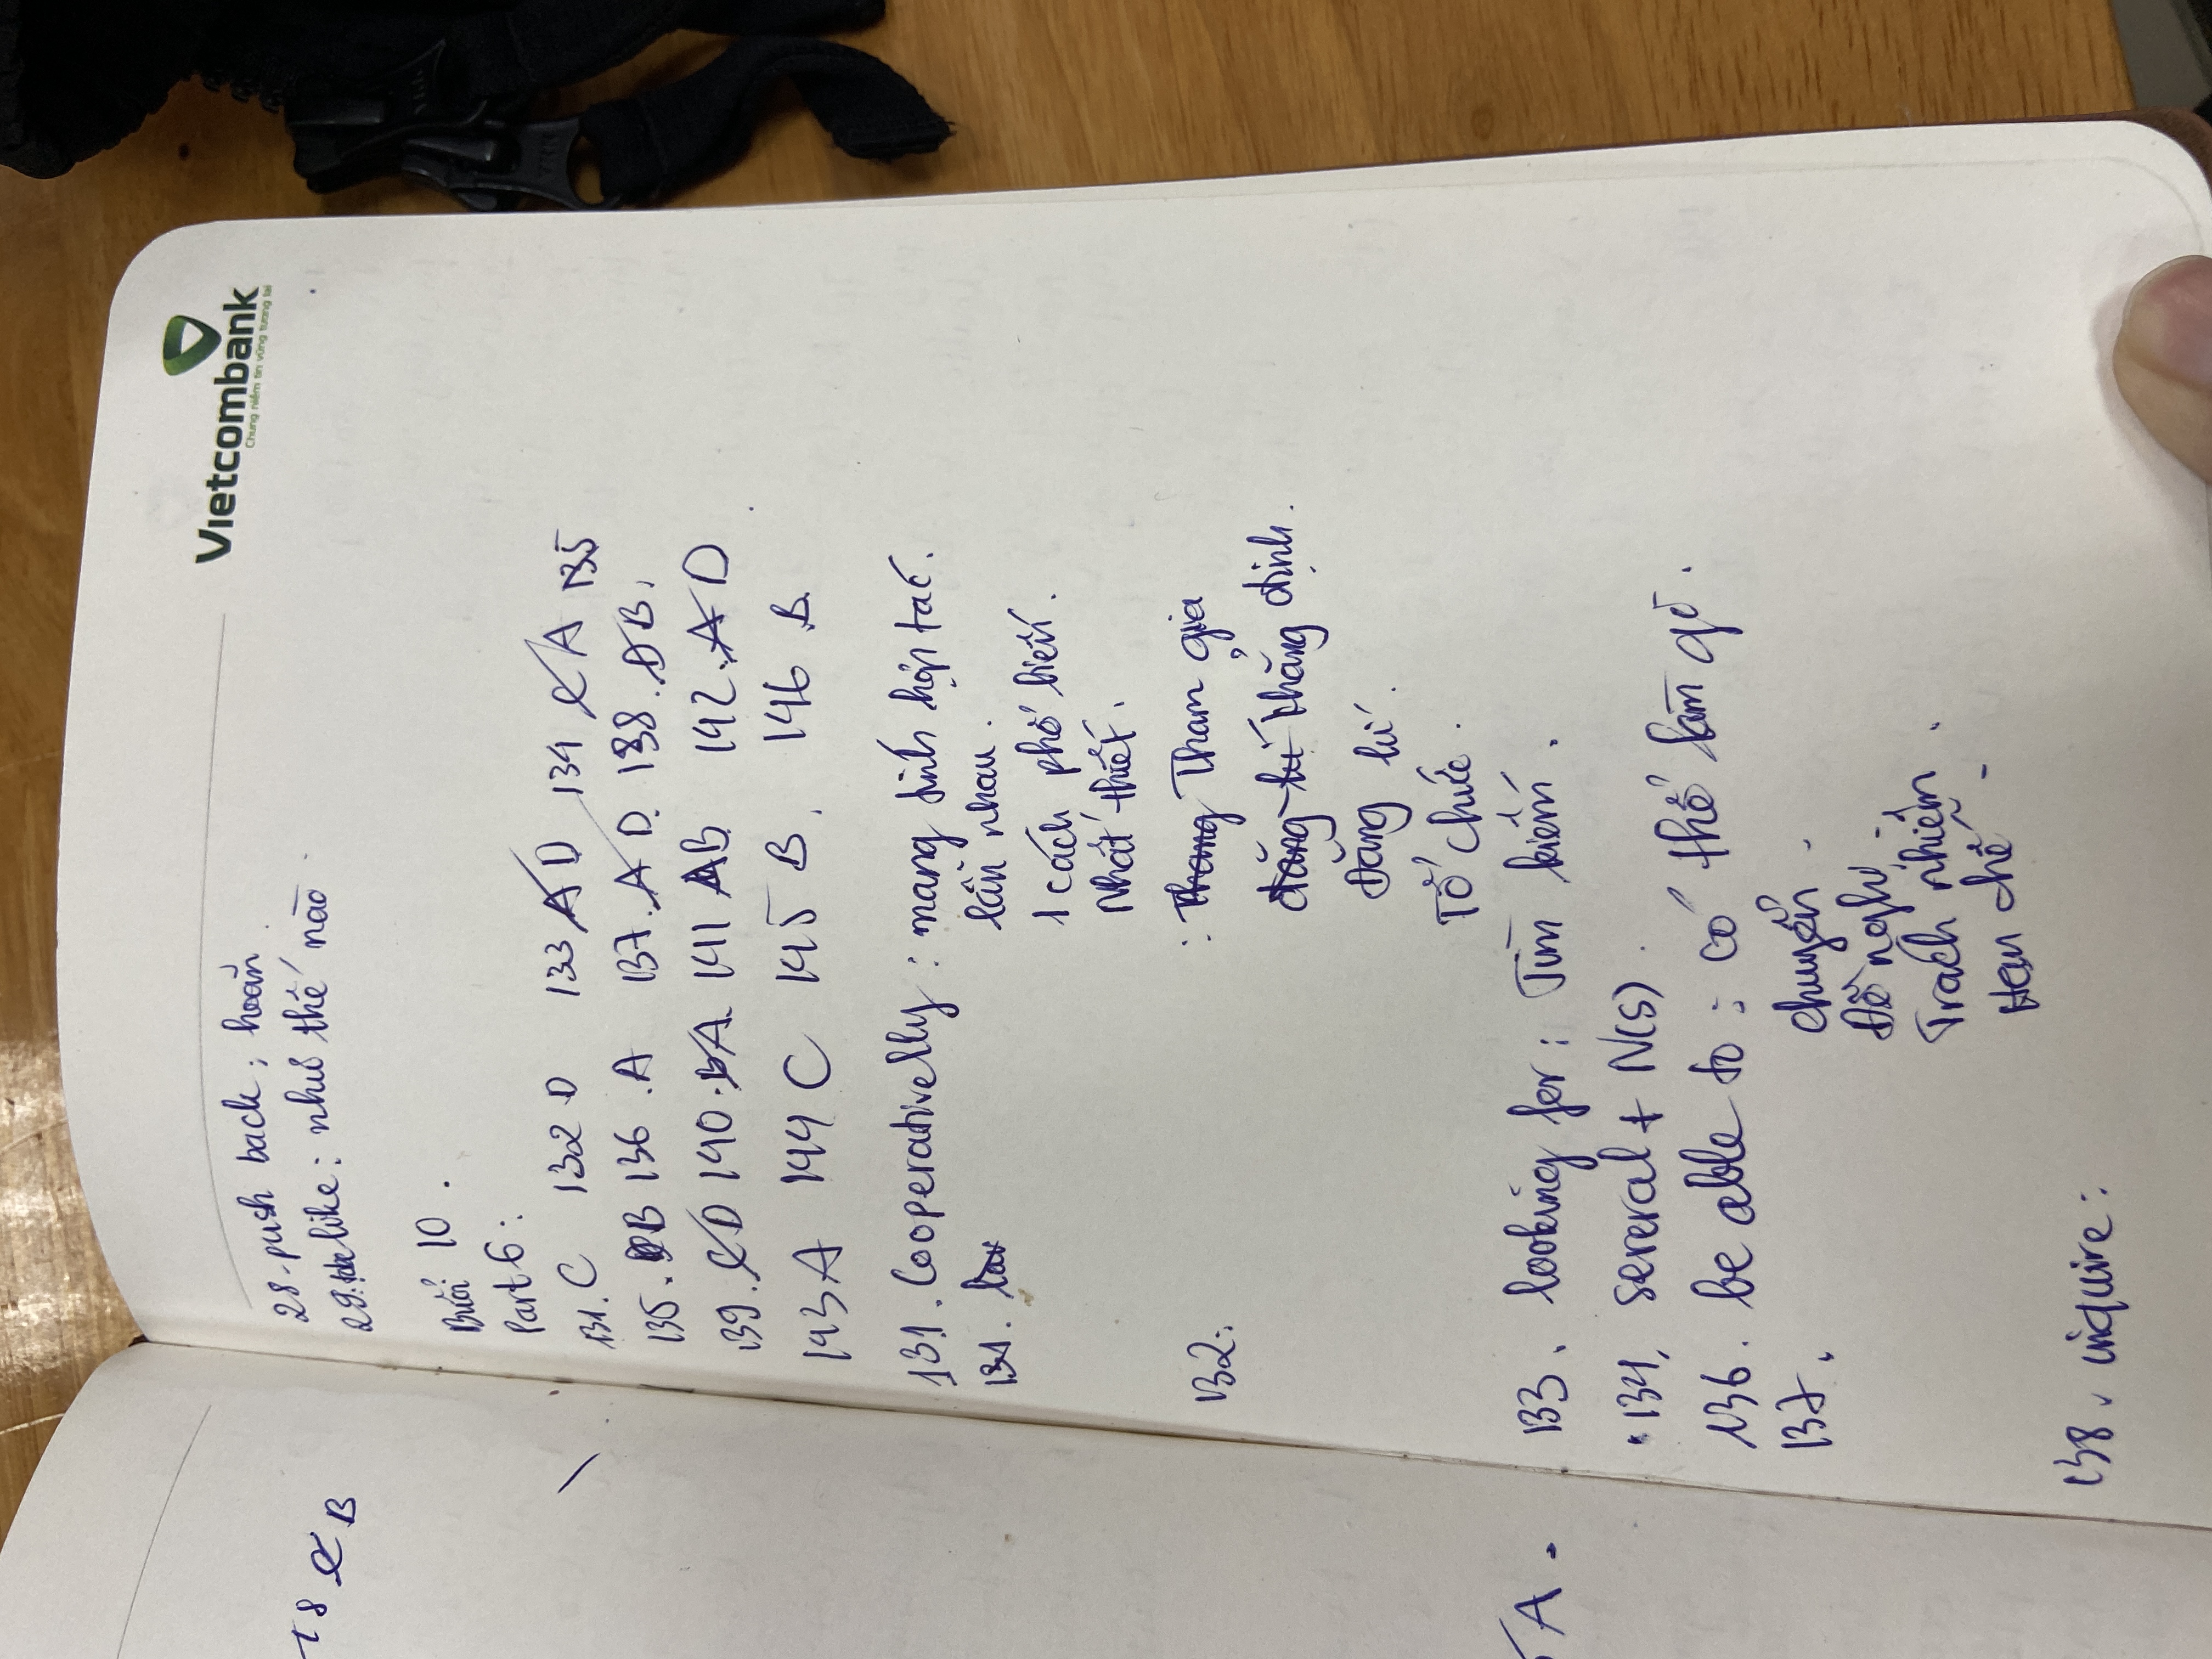 18 C B
A.
Vietcombank
Chung niềm tin vững tương lai
28. push back : hoãn.
29. to be like : như thế nào.
Buổi 10.
Part 6 :
131. C 132 D 133 A D 134 C A 135
135. B 136 . A 137. A D. 138 . D B.
139. C D 140. B A. 141 A B 142. A D
143 A 144 C 145 B. 146 B
131. Cooperativelly : mang tính hợp tác.
131. lẫn nhau.
1 cách phổ biến.
Nhất thiết.
132: : Thang Tham gia
đăng kí khẳng định.
Đăng kí.
Tổ chức.
133. looking for : Tìm kiếm.
134. several + N(s).
136. be able to : có thể làm gì.
137. chuyến.
Đề nghị.
Trách nhiệm.
Hạn chế.
138. inquire :